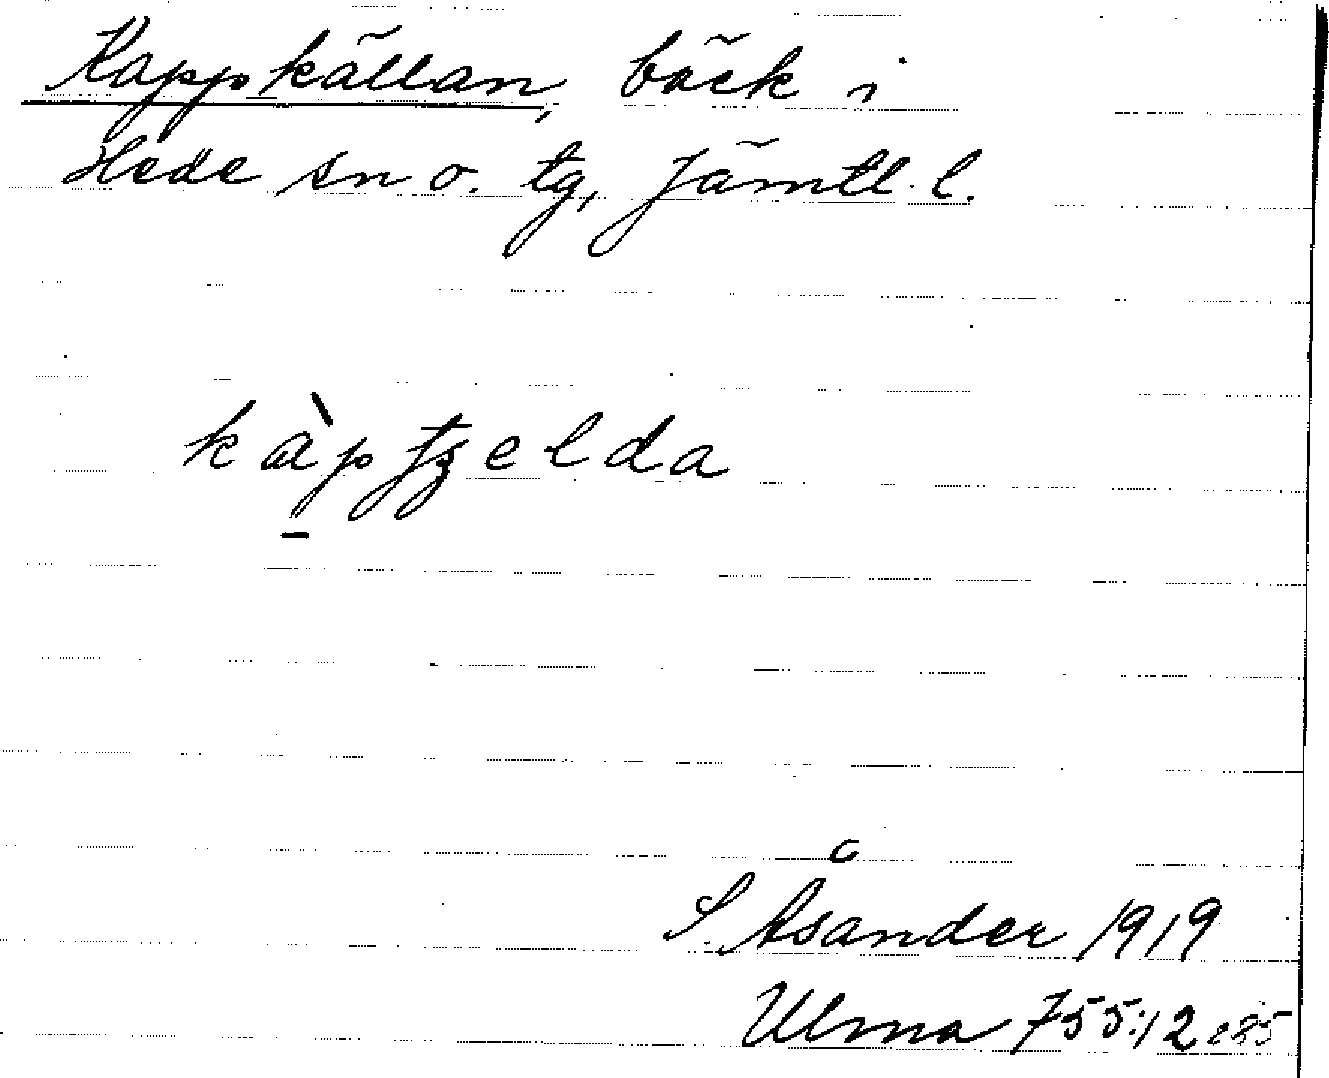 Kappkällan, bäck i
Hede sn o. tg, Jämtl. l.
kàptʒelda
S. Åsander 1919
Ulma 755:12 s85